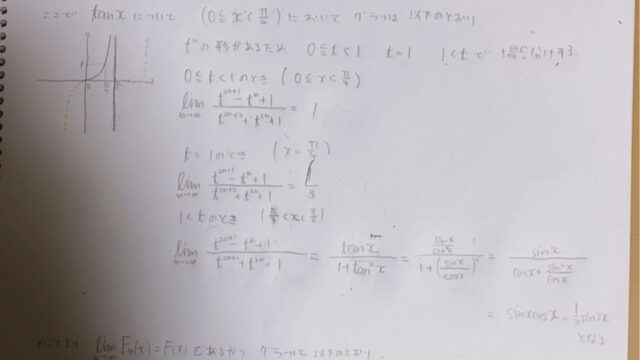 ここで tanxについて (0≦x<π/2)において グラフは以下のとおり
t^nの形があるため 0≦t<1 t=1 1<t で
0≦t<1のとき (0≦x<π/4)
lim n→∞ (t^{2n+1}-t^n+1)/(t^{2n+2}+t^{2n}+1) = 1
t=1のとき (x=π/4)
lim n→∞ (t^{2n+1}-t^n+1)/(t^{2n+2}+t^{2n}+1) = 1/3
1<tのとき (π/4<x<π/2)
lim n→∞ (t^{2n+1}-t^n+1)/(t^{2n+2}+t^{2n}+1) = tanx/(1+tan²x) = (sinx/cosx)/(1+(sinx/cosx)²) = sinx/(cosx+sin²x/cosx)
= sinxcosx=1/2 sin2x
となる
lim Fn(x)=F(x) であるから グラフは以下のとおり